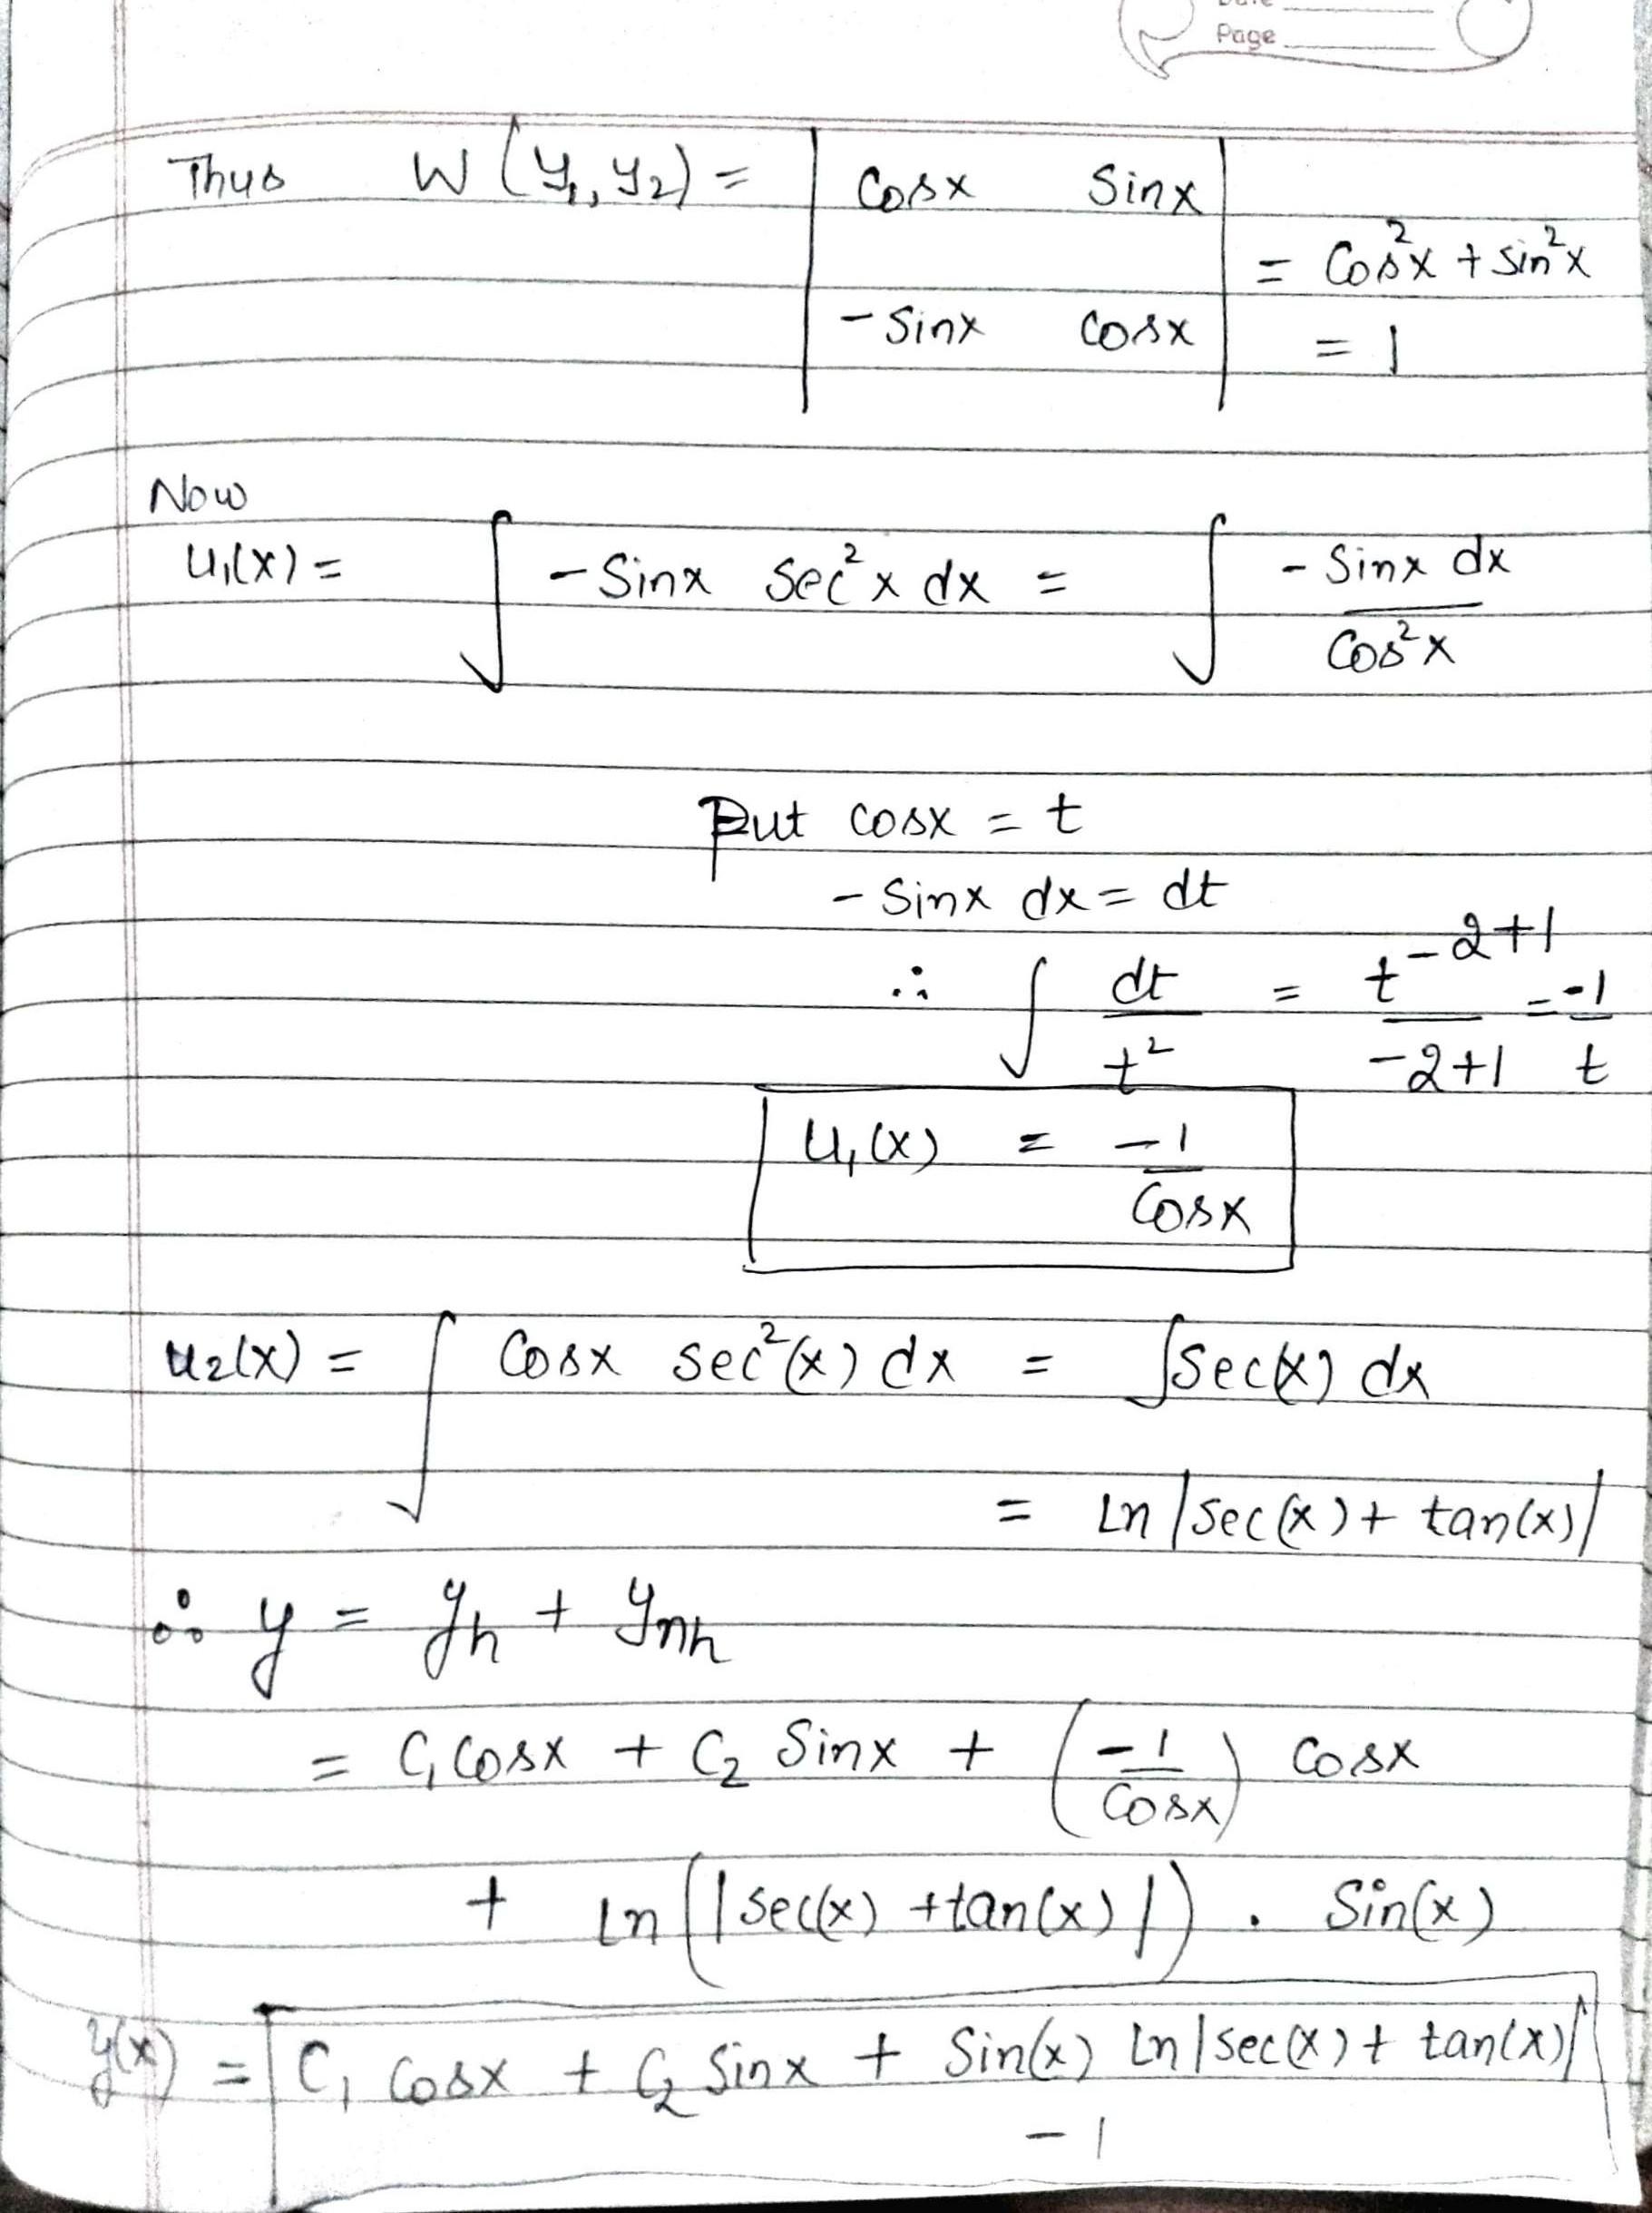 Date
Page
Thus W(y₁, y₂) = | cosx sinx |
= cos²x + sin²x
| -sinx cosx | = 1
Now
u₁(x) = ∫ -sinx sec²x dx = ∫ -sinx dx / cos²x
Put cosx = t
-sinx dx = dt
∴ ∫ dt/t² = t^(-2+1) / (-2+1) = -1/t
u₁(x) = -1/cosx
u₂(x) = ∫ cosx sec²(x) dx = ∫sec(x) dx
= ln |sec(x) + tan(x)|
∴ y = yh + ynh
= C₁ cosx + C₂ sinx + (-1/cosx) cosx
+ ln(|sec(x) + tan(x)|) . sin(x)
y(x) = C₁ cosx + C₂ sinx + sin(x) ln|sec(x) + tan(x)|
-1